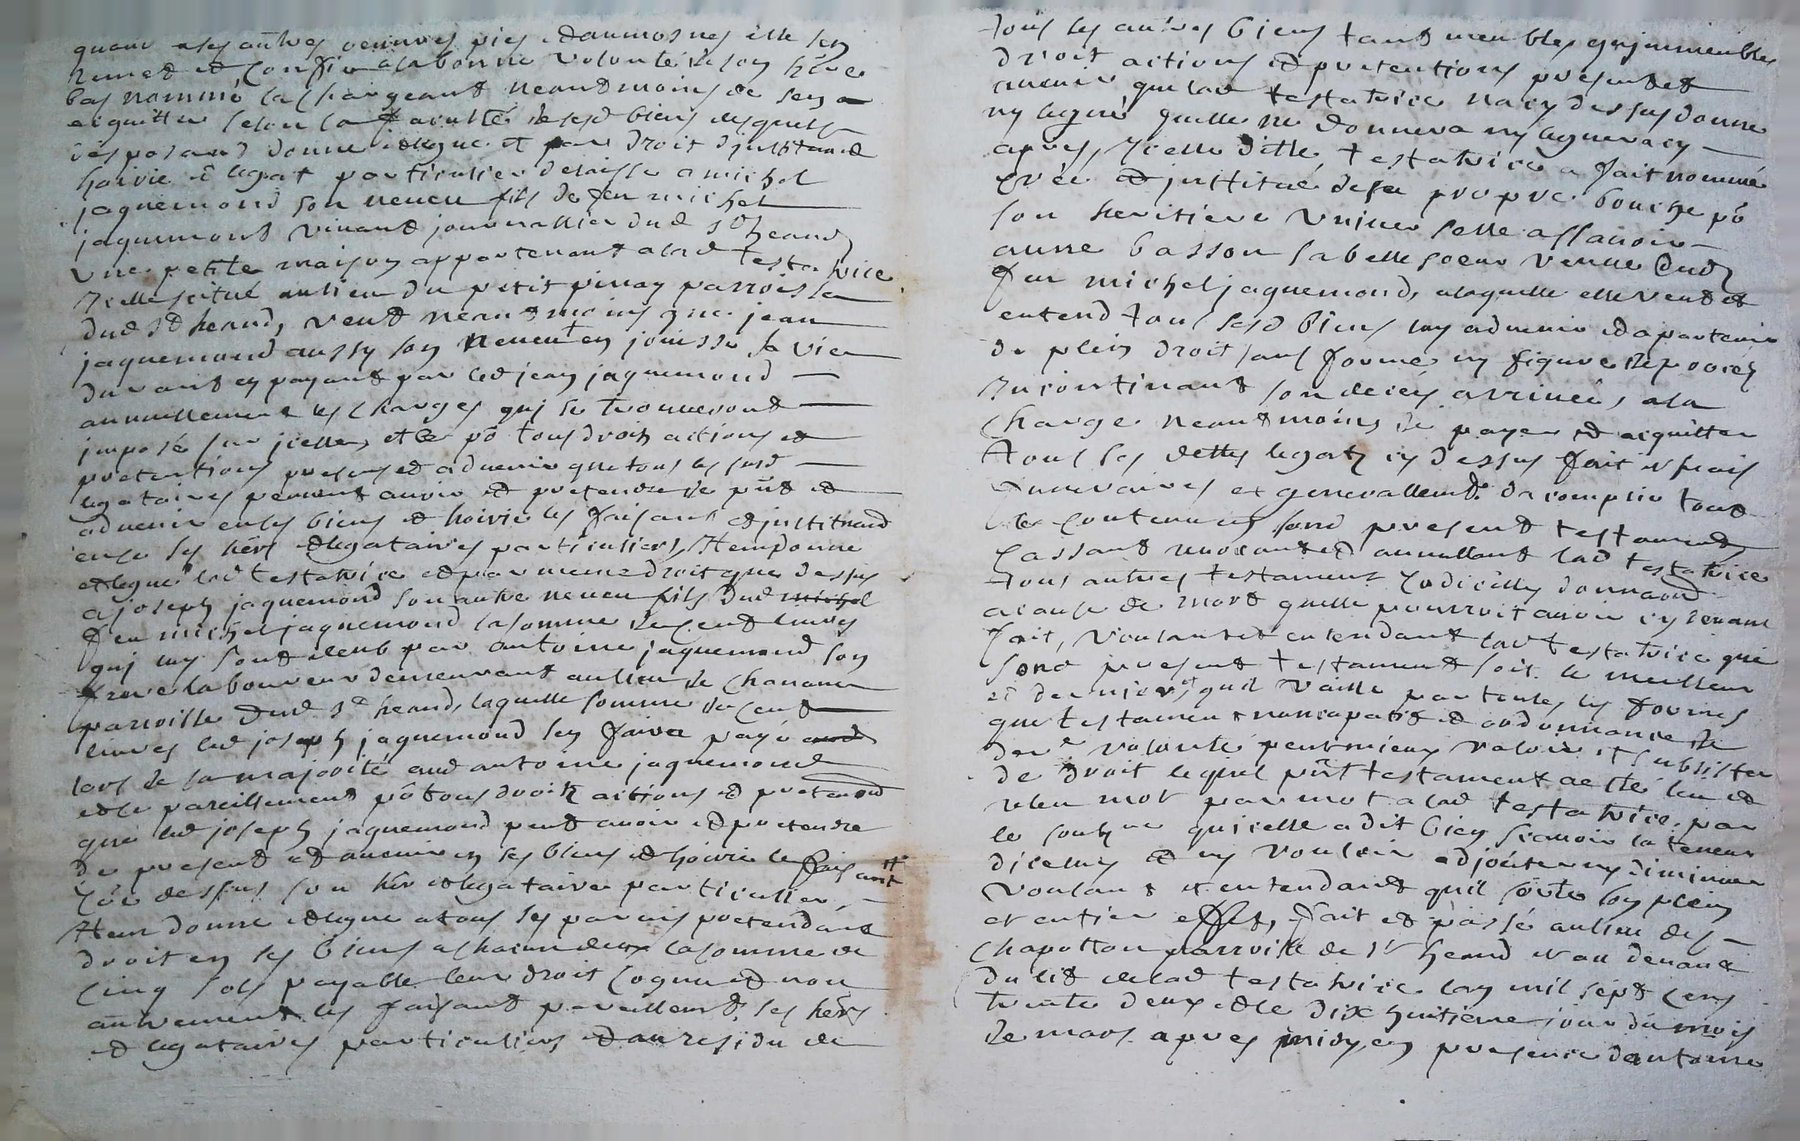 quant a ses autres oeuvres pies et aumosnes elle sen
remet et confie a la bonne volonté de son hére
bas nommé la chargeant neantmoins de sen
acquitter selon la faculté de sesd biens desquels
disposant donne et legue et par droit dinstitution
hoirie et legat particulier delaisse a michel
jaquemond son neveu fils de feu michel
jaquemond vivant journallier dud st heand
une petite maison appartenant a lad testatrice
Icelle scitué au lieu du petit pinay parroisse
dud st heand, veut neantmoins que jean
jaquemond aussy son neveu en jouisse sa vie
durant en payant par led jean jaquemond
annuellement les charges quj se trouveront
imposé sur jcelle, et ce po tous droits actions et
pretentions presens et advenir que tous les susd
legataires peuvent avoir et pretendre de pnt et
advenir en ses biens et hoirie les faisant et justituant
en ce ses hérs et legataires particuliers, Item donne
et legue lad testatrice et par meme droit que dessus
a joseph jaquemond son autre neveu fils dud michel
feu michel jaquemond la somme de cent livres
quj luy sont deub par antoine jaquemond son
frere laboureur demeurant au lieu de chanane
parroisse dud st heand, laquelle somme de cent
livres led joseph jaquemond sen faira payé
lors de sa majorité aud antoine jaquemond
et ce pareillement po tous droits actions et pretentions
que led joseph jaquemond peut avoir et pretendre
de present et avenir en ses biens et hoirie le faisant
cõe dessus son hér et legataire particulier,
Item donne et legue a tous ses parens pretendant
droit en ses biens a chacun deux la somme de
cinq sols payable leur droit cognu et non
autrement les faisant pareillemt ses hérs
et legataires particuliers, et au residu de
tous les autres biens tant meubles qujmmeubles
droit actions et pretentions present et
avenir que lad testatrice na cy dessus donne
ny legué quelle ne donnera ny leguera cy
apres, Icelle ditte testatrice a fait nommé
créé et justitué de sa propre bouche po
son heritiere universelle assavoir
anne basson sa belle soeur veuve dud
feu michel jaquemond, a laquelle elle veut et
entend tous sesd biens luy advenir et apartenir
de plein droit sans forme ny figure de procez
Incontinant son deces arrivé, a la
charge neantmoins de payer et acquitter
tous ses dettes legats cy dessus fait et frais
funeraires et generallemt daccomplir tout
le contenu en sond present testament
cassant revocant et annullant lad testatrice
tous autres testament codicilles donnaon
a cause de mort quelle pourroit avoir cy devant
fait, voulant et entendant lad testatrice que
sond present testament soit le meilleur
et dernier, et quil vaille par toutes les formes
que testament noncupatif et ordonnance de
derre volonté peut mieux valoir et subsister
de droit lequel pñt testament a esté leu et
releu mot par mot a lad testatrice par
le soubzne quicelle a dit bien scavoir la teneur
dicelluy et ny vouloir adjouter ny diminuer
voulant et entendant quil sorte son plein
et entier effet, fait et passé au lieu de
chapotton parroisse de st heand et au devant
du lit de lad testatrice lan mil sept cens
trente deux et le dix huitieme jour du mois
de mars apres midy, en presence dantoine